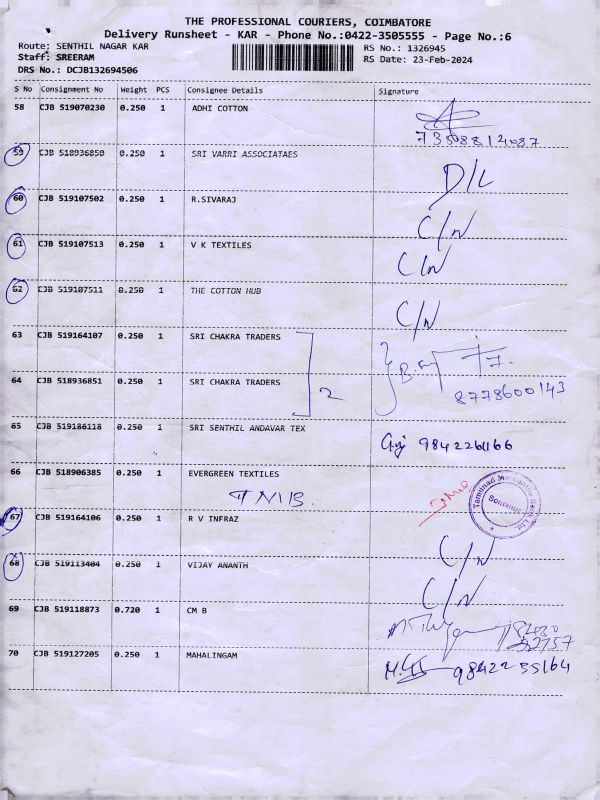 THE PROFESSIONAL COURIERS, COIMBATORE
Delivery Runsheet - KAR - Phone No.:0422-3505555 - Page No.:6
Route: SENTHIL NAGAR KAR RS No.: 1326945
Staff: SREERAM RS Date: 23-Feb-2024
DRS No.: DCJB132694506
S No Consignment No Weight PCS Consignee Details Signature
58 CJB 519070230 0.250 1 ADHI COTTON
7350881 4087
59 CJB 518936850 0.250 1 SRI VARRI ASSOCIATAES D/L
60 CJB 519107502 0.250 1 R.SIVARAJ C/N
61 CJB 519107513 0.250 1 V K TEXTILES C/N
62 CJB 519107511 0.250 1 THE COTTON HUB C/N
63 CJB 519164107 0.250 1 SRI CHAKRA TRADERS
64 CJB 518936851 0.250 1 SRI CHAKRA TRADERS 2 8778600143
65 CJB 519186118 0.250 1 SRI SENTHIL ANDAVAR TEX 9842264166
66 CJB 518906385 0.250 1 EVERGREEN TEXTILES
TMB Tamilnad Mercantile Bank Ltd Somanur
67 CJB 519164106 0.250 1 R V INFRAZ C/N
68 CJB 519113404 0.250 1 VIJAY ANANTH C/N
69 CJB 519118873 0.720 1 CM B
70 CJB 519127205 0.250 1 MAHALINGAM 9842255164